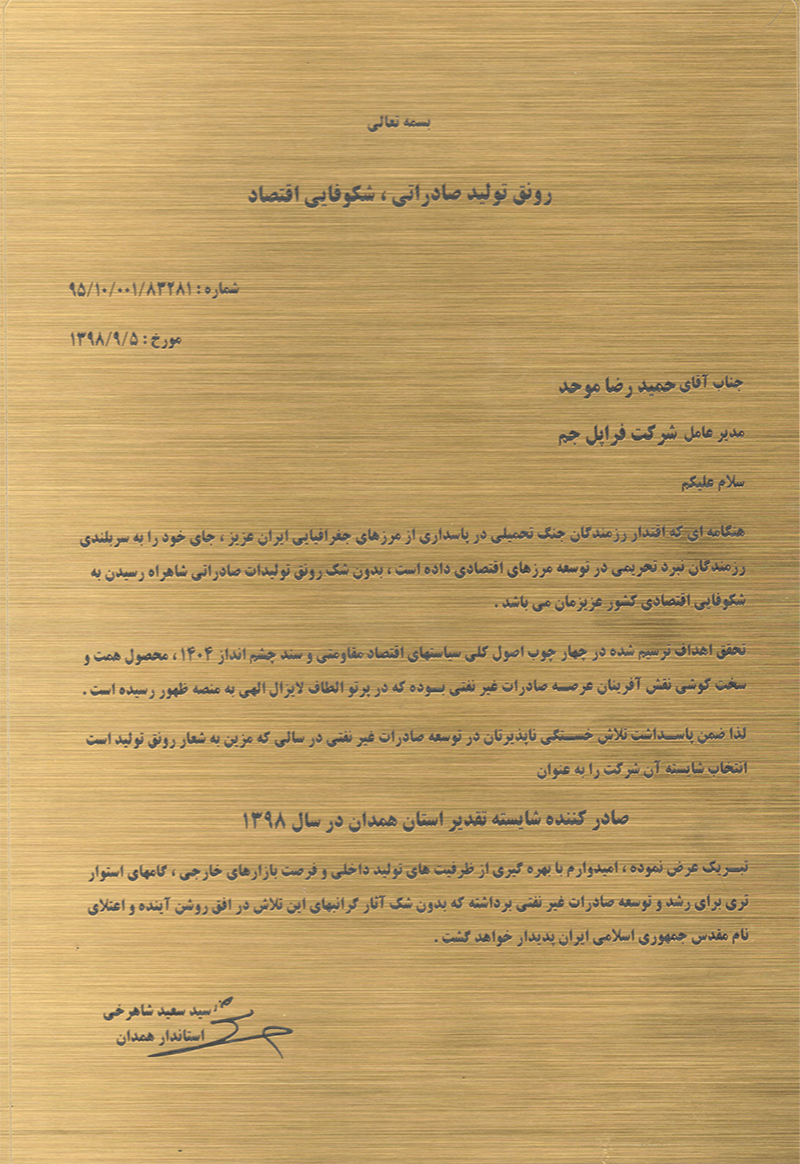 بسمه تعالی
رونق تولید صادراتی ، شکوفایی اقتصاد
شماره : ۹۵/۱۰/۰۰۱/۸۳۲۸۱
مورخ : ۱۳۹۸/۹/۵
جناب آقای حمید رضا موحد
مدیر عامل شرکت فراپل جم
سلام علیکم
هنگامه ای که اقتدار رزمندگان جنگ تحمیلی در پاسداری از مرزهای جغرافیایی ایران عزیز ، جای خود را به سربلندی
رزمندگان نبرد تحریمی در توسعه مرزهای اقتصادی داده است ، بدون شک رونق تولیدات صادراتی شاهراه رسیدن به
شکوفایی اقتصادی کشور عزیزمان می باشد .
تحقق اهداف ترسیم شده در چهار چوب اصول کلی سیاستهای اقتصاد مقاومتی و سند چشم انداز ۱۴۰۴ ، محصول همت و
سخت کوشی نقش آفرینان عرصـه صادرات غیر نفتی بـوده که در پرتو الطاف لایزال الهی به منصه ظهور رسیده است .
لذا ضمن پاسـداشت تلاش خسـتگی ناپذیرتان در توسعه صادرات غیر نفتی در سالی که مزین به شعار رونق تولید است
انتخاب شایسته آن شرکت را به عنوان
صادر کننده شایسته تقدیر استان همدان در سال ۱۳۹۸
تبـریک عرض نموده ، امیدوارم با بهره گیری از ظرفیت های تولید داخلی و فرصت بازارهای خارجی ، گامهای استوار
تری برای رشد و توسعه صادرات غیر نفتی برداشته که بدون شک آثار گرانبهای این تلاش در افق روشن آینده و اعتلای
نام مقدس جمهوری اسلامی ایران پدیدار خواهد گشت .
سید سعید شاهرخی
استاندار همدان